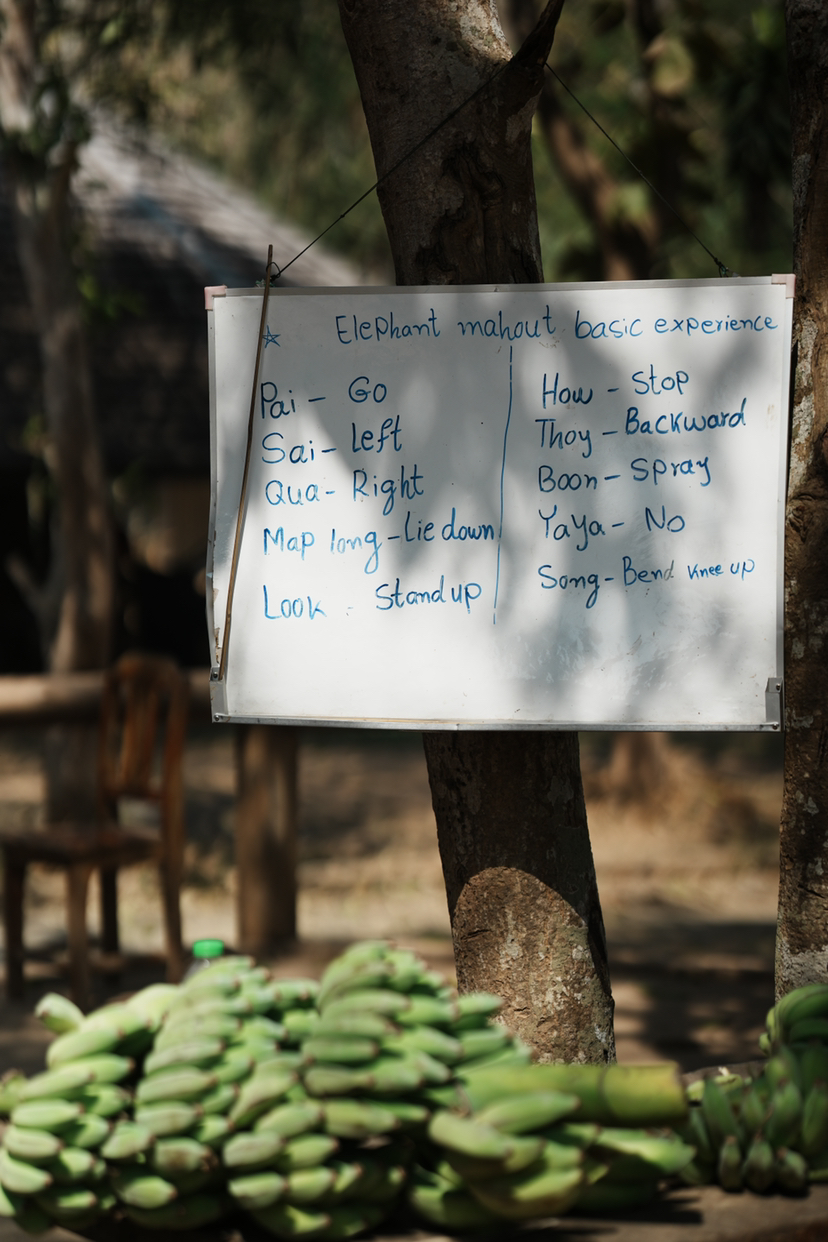 Elephant mahout basic experience
Pai - Go
Sai - Left
Qua - Right
Map long - Lie down
Look - Stand up
How - Stop
Thoy - Backward
Boon - Spray
YaYa - No
Song - Bend knee up